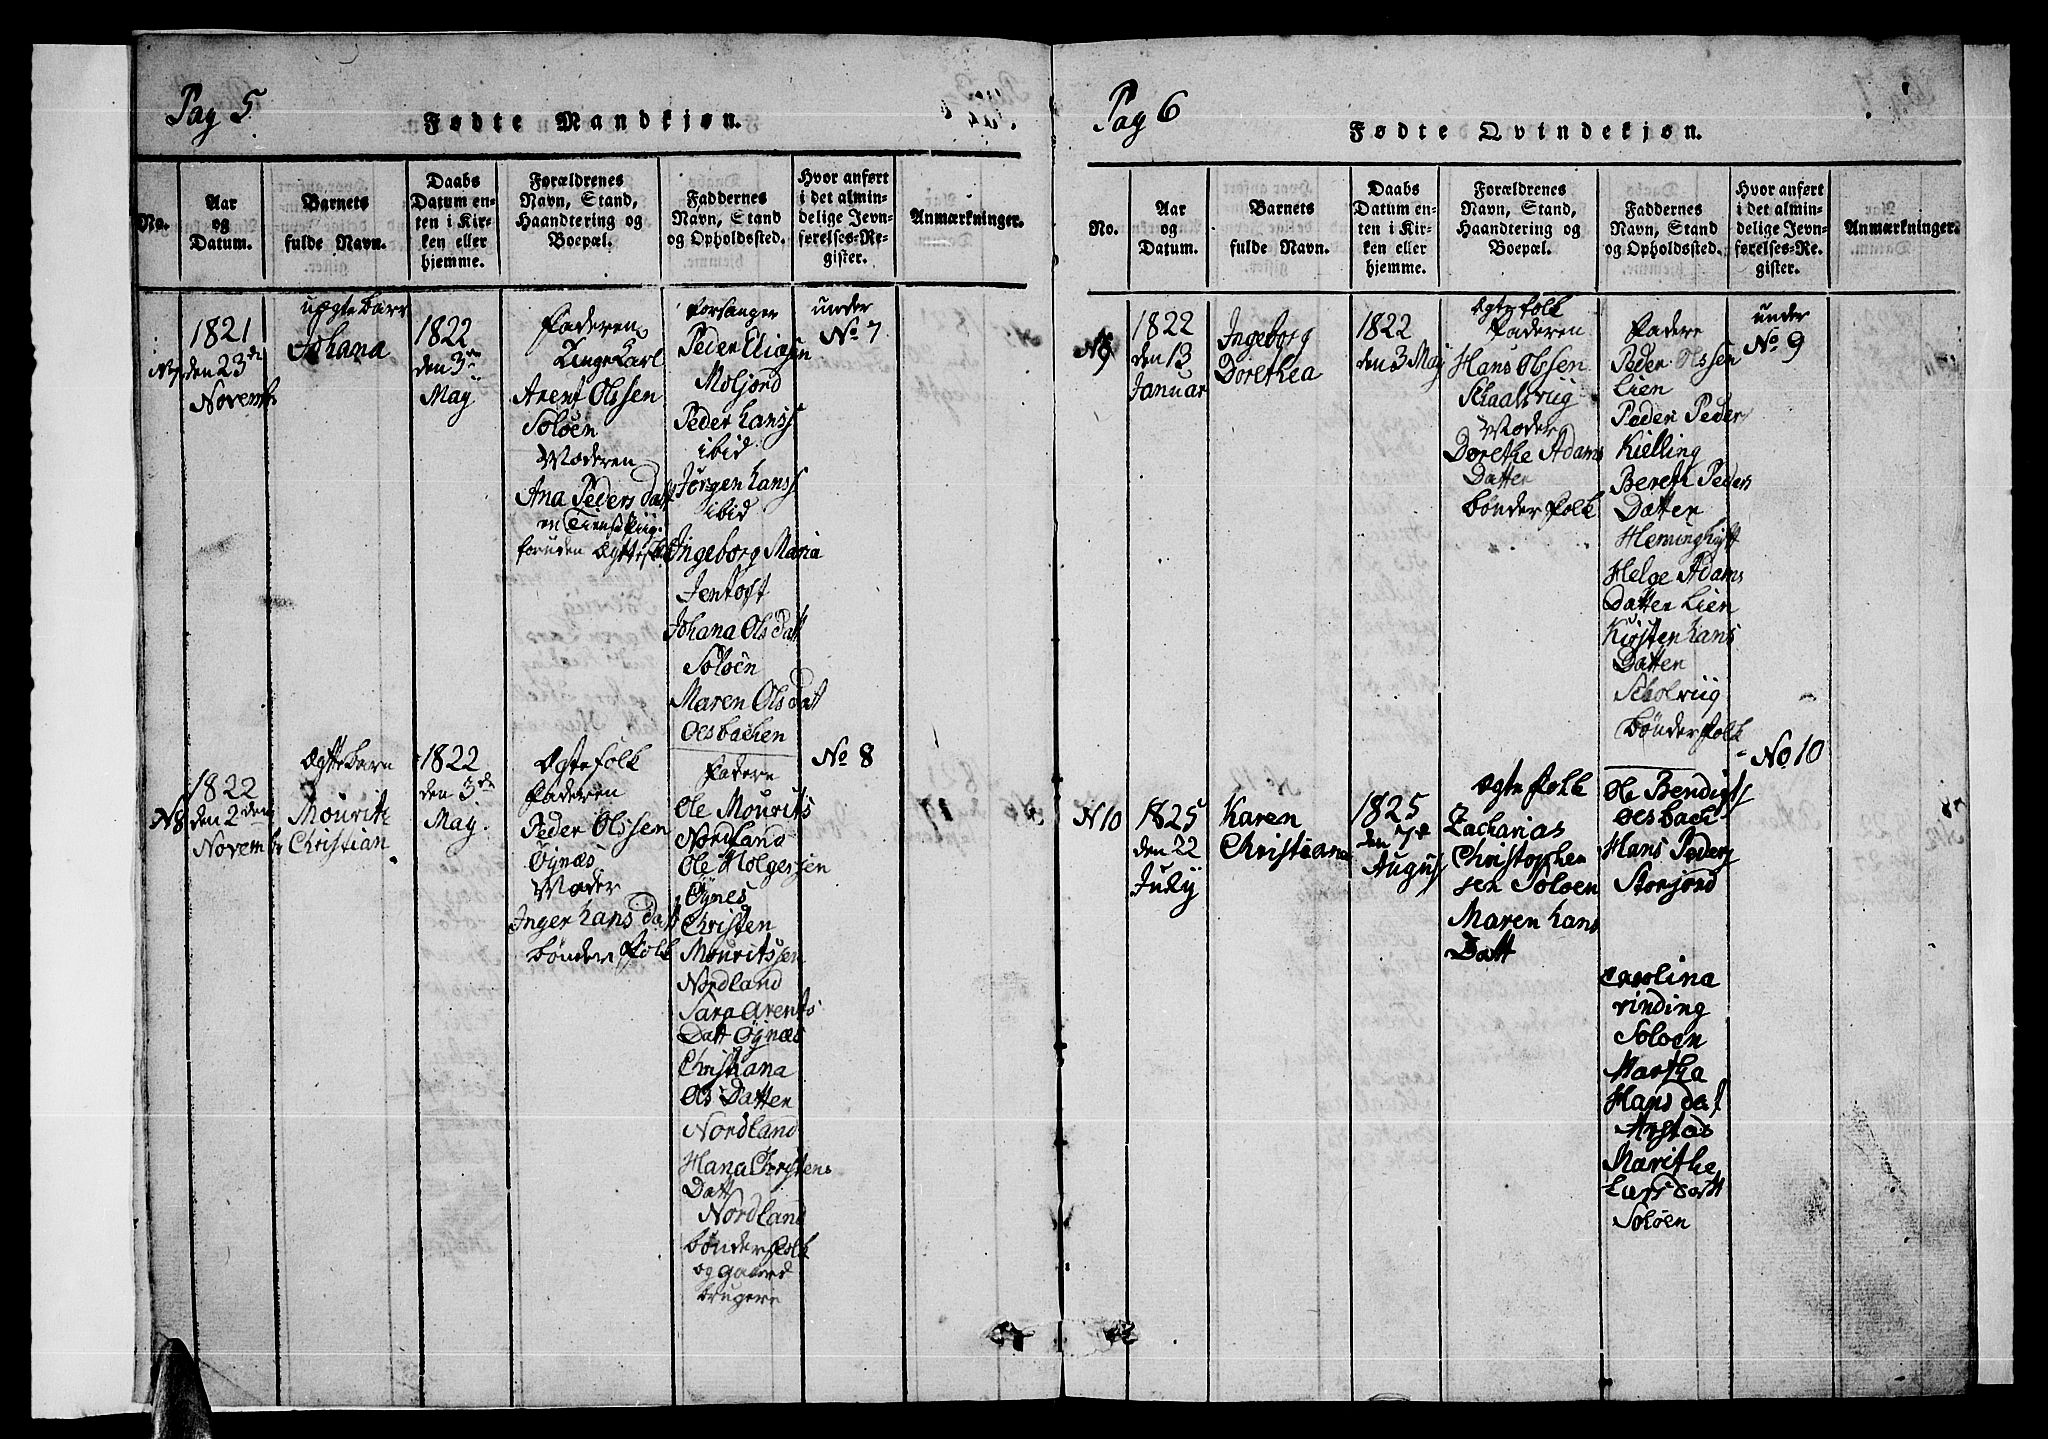 Pag 5
Fødte Mandkjøn.
No.
Aar
og
Datum.
Barnets
fulde Navn.
Daabs
Datum en-
ten i Kir-
ken eller
hjemme.
Forældrenes
Navn, Stand,
Haandtering og
Boepæl.
Faddernes
Navn, Stand
og Opholdssted.
Hvor anført
i det almin-
delige Jevn-
førelses-Re-
gister.
Anmærkninger.
1821
den 23de
Novemb
uægte barn
Johana
1822
den 3
May
Faderen
Unge Karl
Arent Olssen
Soløen
Moderen
Ana Peders datt
en
foruden Ægte
Forsanger
Peder Eliasen
Moljord
Peder Hanss
ibid
Jørgen Hanss
ibid
Ingeborg Maria
Jentoft
Johana Ols datt
Soløen
Maren Ols datt
Oesbachen
under
No 7
N8
1822
den 2den
Novemb
Ægte barn
Mouritz
Christian
1822
den 3de
May.
Ægtefolk
Faderen
Peder Olssen
Øynæs
Moder
Inger Hans datt
bønder folk
Fadere
Ole Mourits
Nordland
Ole Holgerssen
Øynes
Christen
Mouritssen
Nordland
Sara Arents
Datt Øynæs
Christiana
Ols Datter
Nordland
Hana Christens
Datt
Nordland
bønder folk
og gaard
brugere
No 8
Pag 6
Fødte Qvindekjøn.
No.
Aar
og
Datum.
Barnets
fulde Navn.
Daabs
Datum en-
ten i Kir-
ken eller
hjemme.
Forældrenes
Navn, Stand,
Haandtering og
Boepæl.
Faddernes
Navn, Stand
og Opholdssted.
Hvor anført
i det almin-
delige Jevn-
førelses-Re-
gister.
Anmærkninger.
N9
1822
den 13
Januar
Ingeborg
Dorethea
1822
den 3 May
Ægte folk
Faderen
Hans Olssen
Skaalsviig
Moder
Dorethe Adams
Datter
bønder folk
Fadere
Peder Olssen
Lien
Peder Peder
Kielling
Bereth Peders
Datter
Hemminghytt
Helge Adams
Datter Lien
Kirsten Hans
Datter
Scholviig
bønder folk
under
No 9
N10
1825
den 22
July
Karen
Christiana
1825
den 7de
August
Ægte folk
Zacharias
Christopher
sen Soloen
Maren Hans
Datt
Ole Bendigss
Oesbach
Hans Peders
Storjord
Carolina
rinding
Soloen
Martha
Hans dat
Arstad
Marithe
Lars datt
Soløen
No 10